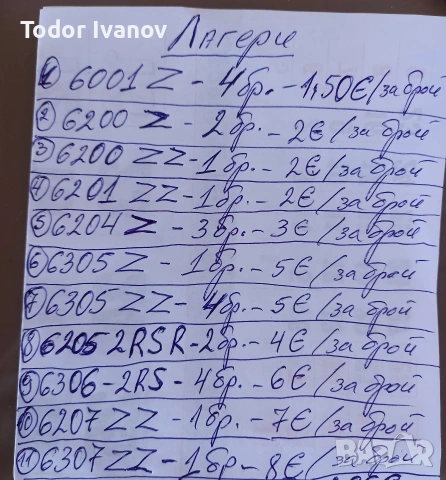 Todor Ivanov
Лагери
1 6001 Z - 4 бр. - 1,50 € / за брой
2 6200 Z - 2 бр. - 2 € / за брой
3 6200 ZZ - 1 бр. - 2 € / за брой
4 6201 ZZ - 1 бр. - 2 € / за брой
5 6204 Z - 3 бр. - 3 € / за брой
6 6305 Z - 1 бр. - 5 € / за брой
7 6305 ZZ - 4 бр. - 5 € / за брой
8 6205 2RSR - 2 бр. - 4 € / за брой
9 6306 - 2RS - 4 бр. - 6 € / за брой
10 6207 ZZ - 1 бр. - 7 € / за брой
11 6307 ZZ - 1 бр - 8 € / за брой